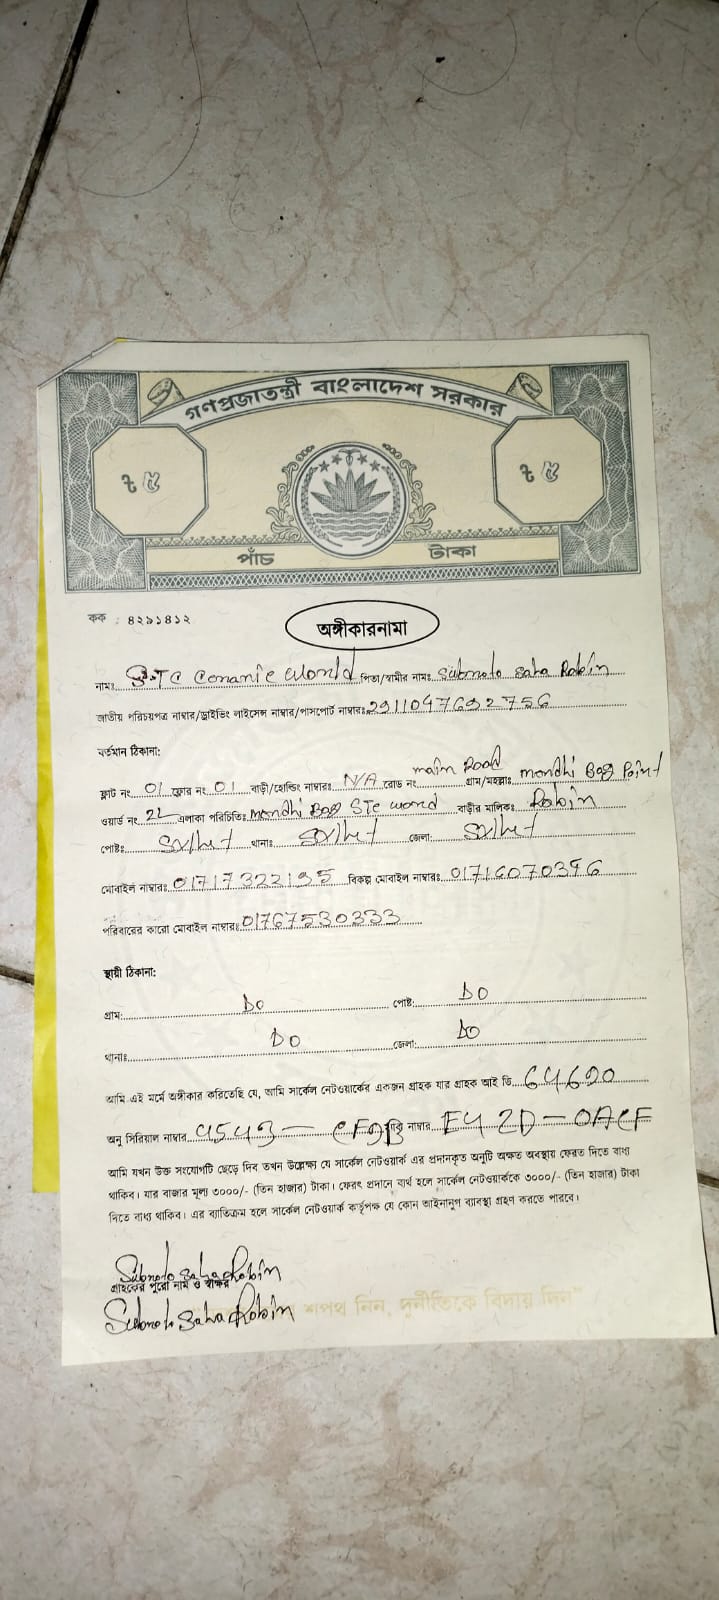 গণপ্রজাতন্ত্রী বাংলাদেশ সরকার
৳ ৫ ৳ ৫
পাঁচ টাকা
কক : ৪২৯১৪১২
অঙ্গীকারনামা
নামঃ S.TC Ceramic world পিতা/স্বামীর নামঃ Subnoto Saha Robin
জাতীয় পরিচয়পত্র নাম্বার/ড্রাইভিং লাইসেন্স নাম্বার/পাসপোর্ট নাম্বারঃ 2911047692756
বর্তমান ঠিকানা:
ফ্লাট নং 01 ফ্লোর নং 01 বাড়ী/হোল্ডিং নাম্বারঃ N/A রোড নং main Road গ্রাম/মহল্লাঃ mondhi Bag Point
ওয়ার্ড নং 22 এলাকা পরিচিতিঃ Mondhi Bag STC world বাড়ীর মালিকঃ Robin
পোষ্টঃ Sylhet থানাঃ Sylhet জেলা: Sylhet
মোবাইল নাম্বারঃ 01717322195 বিকল্প মোবাইল নাম্বারঃ 01716070396
পরিবারের কারো মোবাইল নাম্বারঃ 01767530333
স্থায়ী ঠিকানা:
গ্রাম: DO পোষ্ট: DO
থানাঃ DO জেলা: DO
আমি এই মর্মে অঙ্গীকার করিতেছি যে, আমি সার্কেল নেটওয়ার্কের একজন গ্রাহক যার গ্রাহক আই ডি 64690
অনু সিরিয়াল নাম্বার নাম্বার E42D-0ACF
আমি যখন উক্ত সংযোগটি ছেড়ে দিব তখন উল্লেক্ষ্য যে সার্কেল নেটওয়ার্ক এর প্রদানকৃত অনুটি অক্ষত অবস্থায় ফেরত দিতে বাধ্য
থাকিব। যার বাজার মূল্য ৩০০০/- (তিন হাজার) টাকা। ফেরৎ প্রদানে ব্যর্থ হলে সার্কেল নেটওয়ার্ককে ৩০০০/- (তিন হাজার) টাকা
দিতে বাধ্য থাকিব। এর ব্যতিক্রম হলে সার্কেল নেটওয়ার্ক কর্তৃপক্ষ যে কোন আইনানুগ ব্যাবস্থা গ্রহণ করতে পারবে।
Subnoto Saha Robin
গ্রাহকের পুরো নাম ও স্বাক্ষর
Subnoto Saha Robin শপথ নিন, দুর্নীতিকে বিদায় দিন"